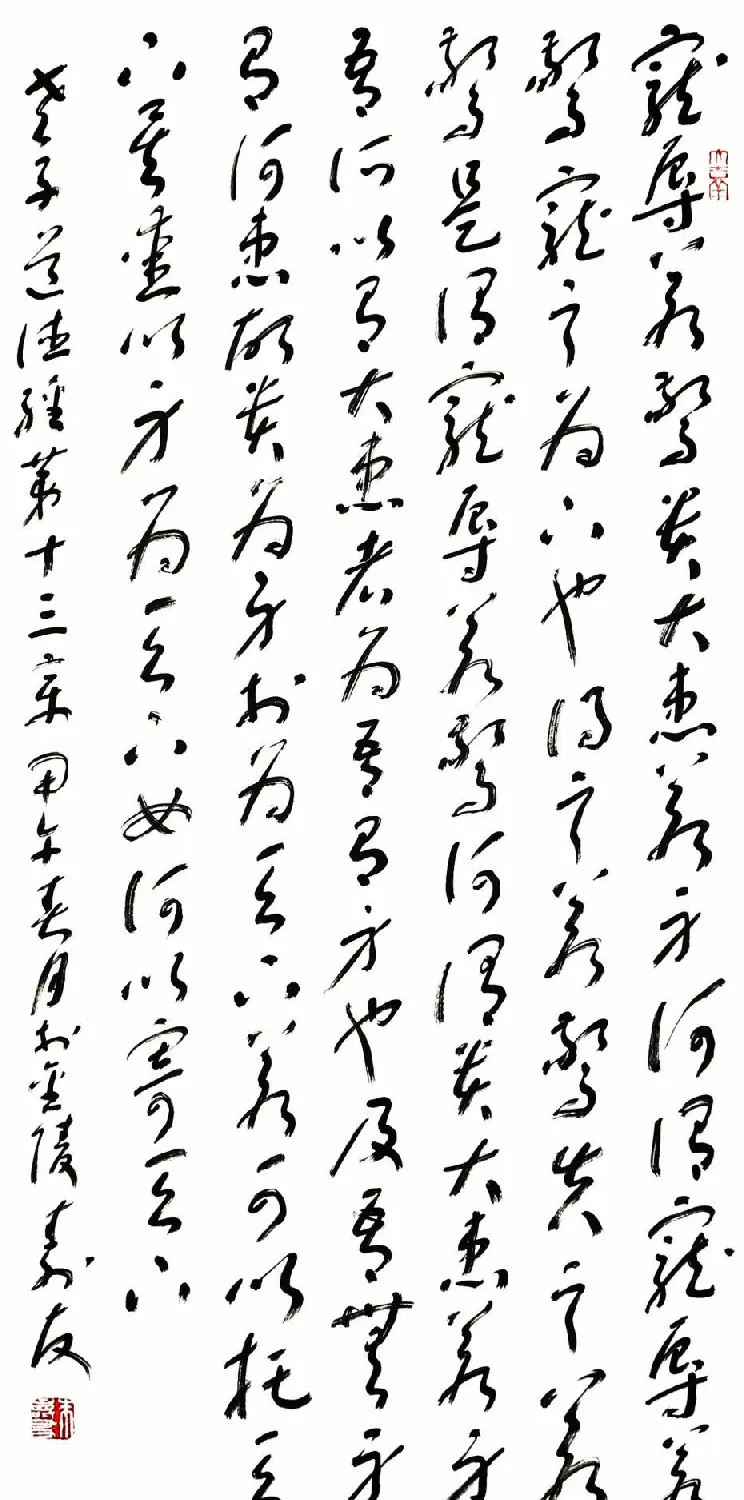 寵辱若驚貴大患若身何謂寵辱若
驚寵之為下也得之若驚失之若
驚是謂寵辱若驚何謂貴大患若身
吾所以有大患者為吾有身也及吾無身
有何患故貴為身於為天下若可以托天
下矣愛以身為天下女何以寄天下
老子道德經第十三章甲午春月於金陵壽友